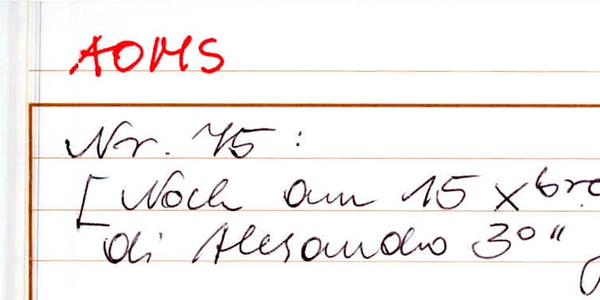 AOMS
Nr. 75:
[Noch am 15 Xbre
di Alesandro 3º"